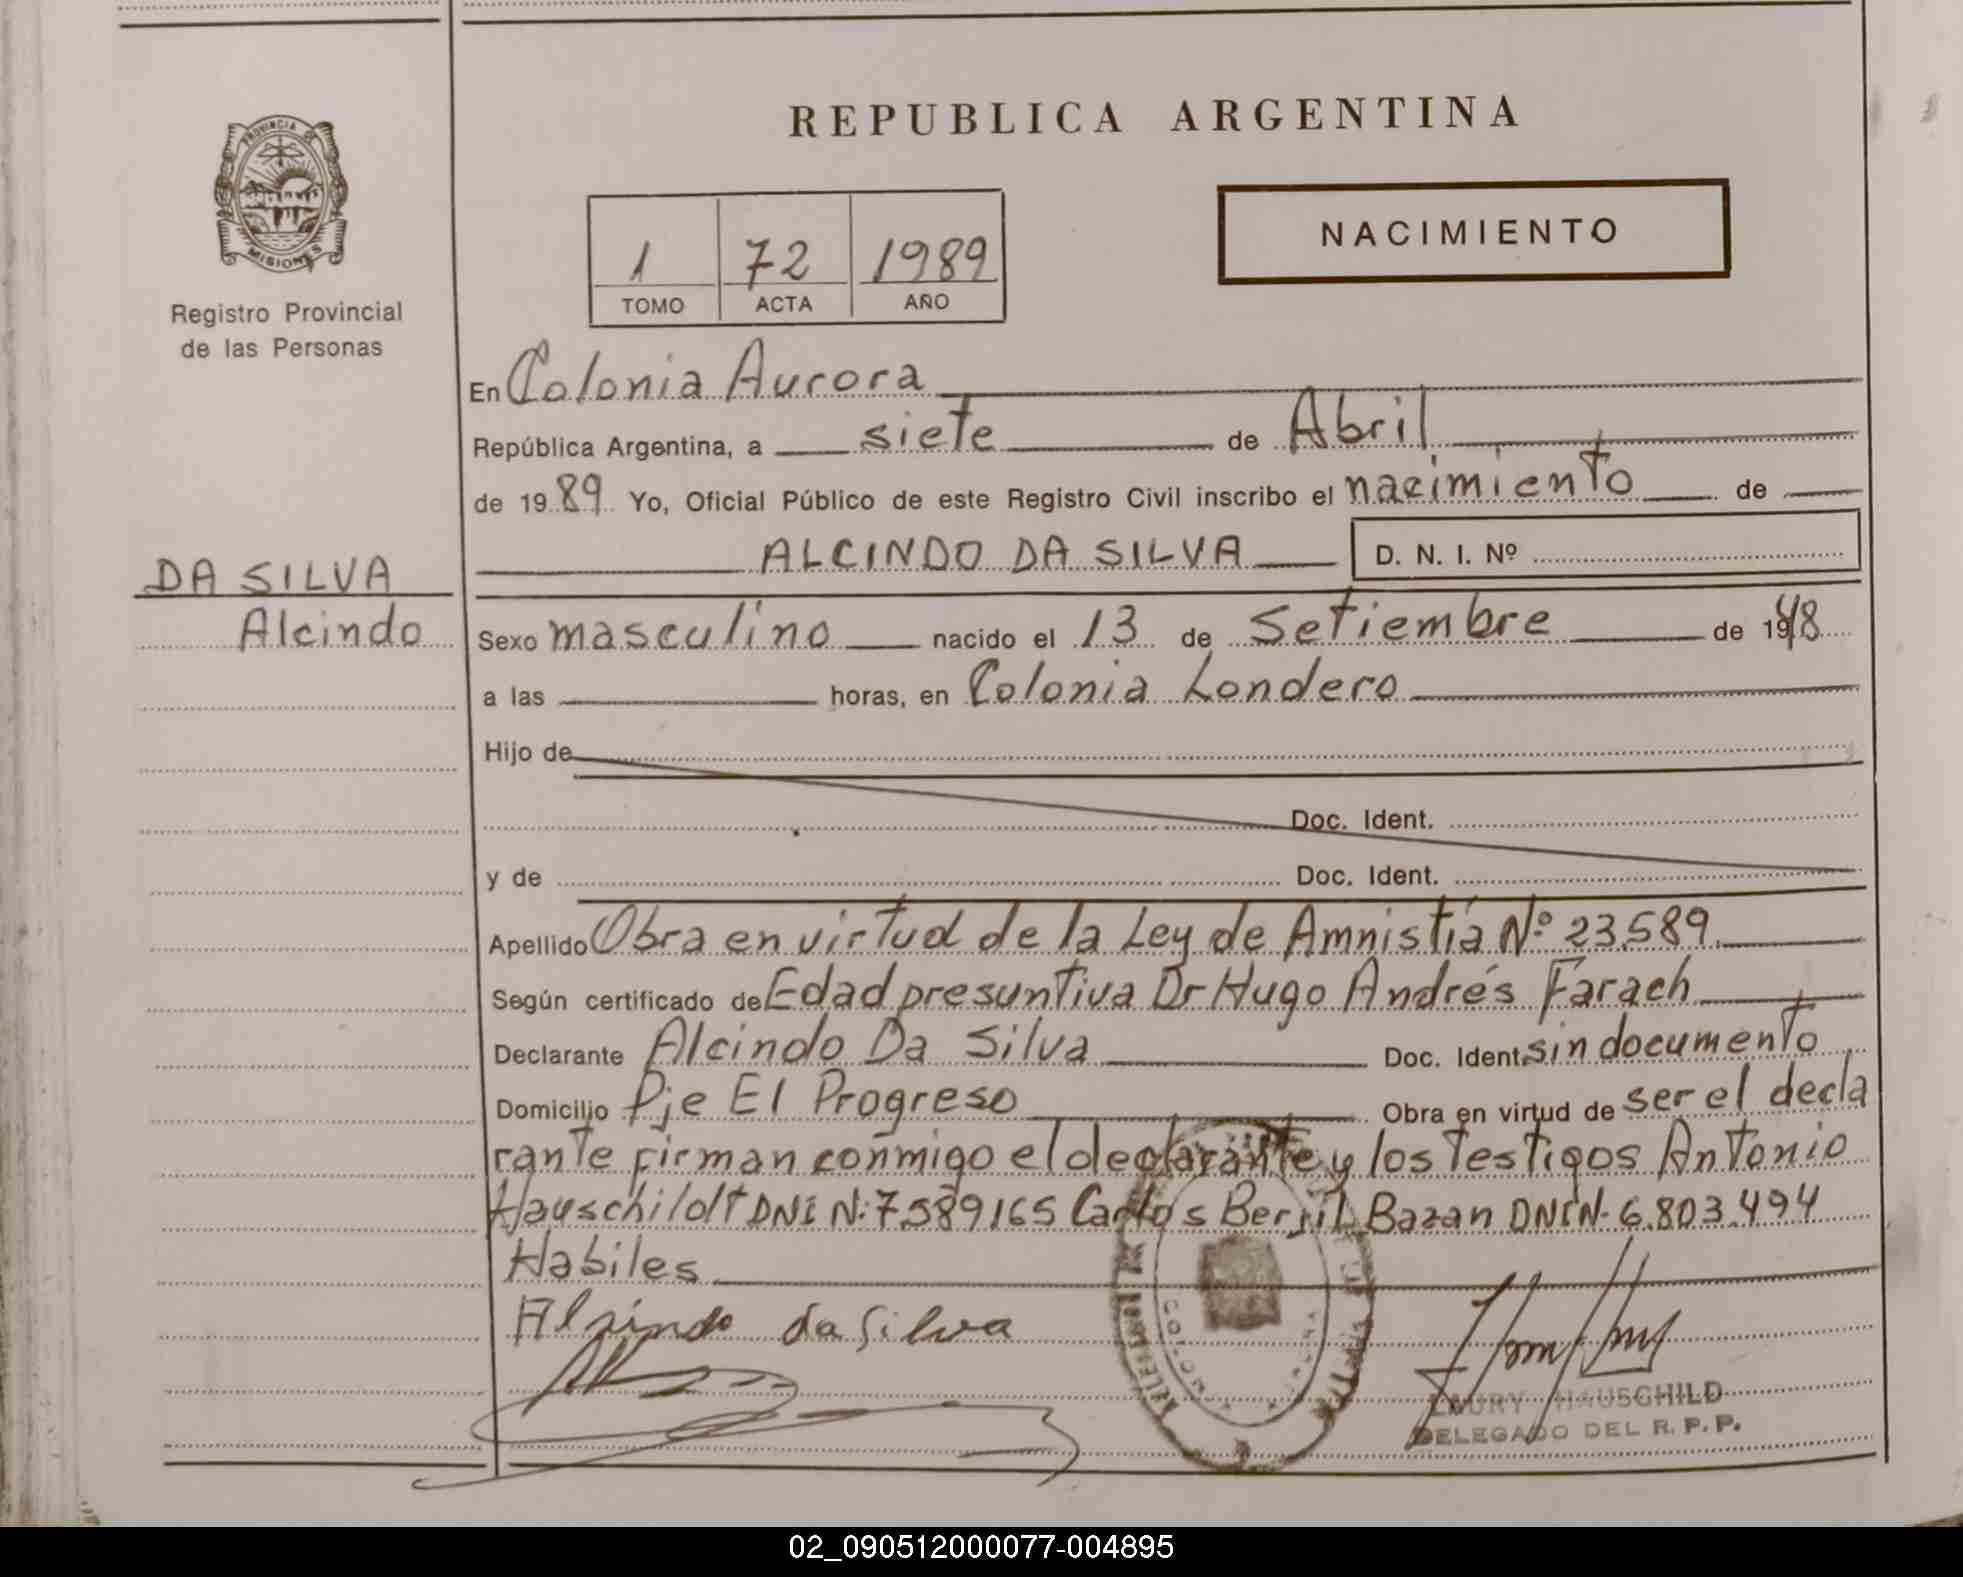 REPUBLICA ARGENTINA
PROVINCIA DE
MISIONES
Registro Provincial
de las Personas
1 72 1989
TOMO ACTA AÑO
NACIMIENTO
En Colonia Aurora
República Argentina, a siete de Abril
de 19 89 Yo, Oficial Público de este Registro Civil inscribo el nacimiento de
ALCINDO DA SILVA D. N. I. Nº
DA SILVA
Alcindo
Sexo masculino nacido el 13 de Setiembre de 1948
a las horas, en Colonia Londero
Hijo de
Doc. Ident.
y de Doc. Ident.
Apellido Obra en virtud de la Ley de Amnistía Nº 23.589.
Según certificado de Edad presuntiva Dr Hugo Andrés Farach
Declarante Alcindo Da Silva Doc. Ident. sin documento
Domicilio Pje El Progreso Obra en virtud de ser el decla
rante firman conmigo el declarante y los testigos Antonio
Hauschildt DNI N: 7.589165 Carlos Bersil Bazan DNI N- 6.803.494
Habiles
Alsindo da Silva
HAUSCHILD
DELEGADO DEL R. P. P.
02_090512000077-004895